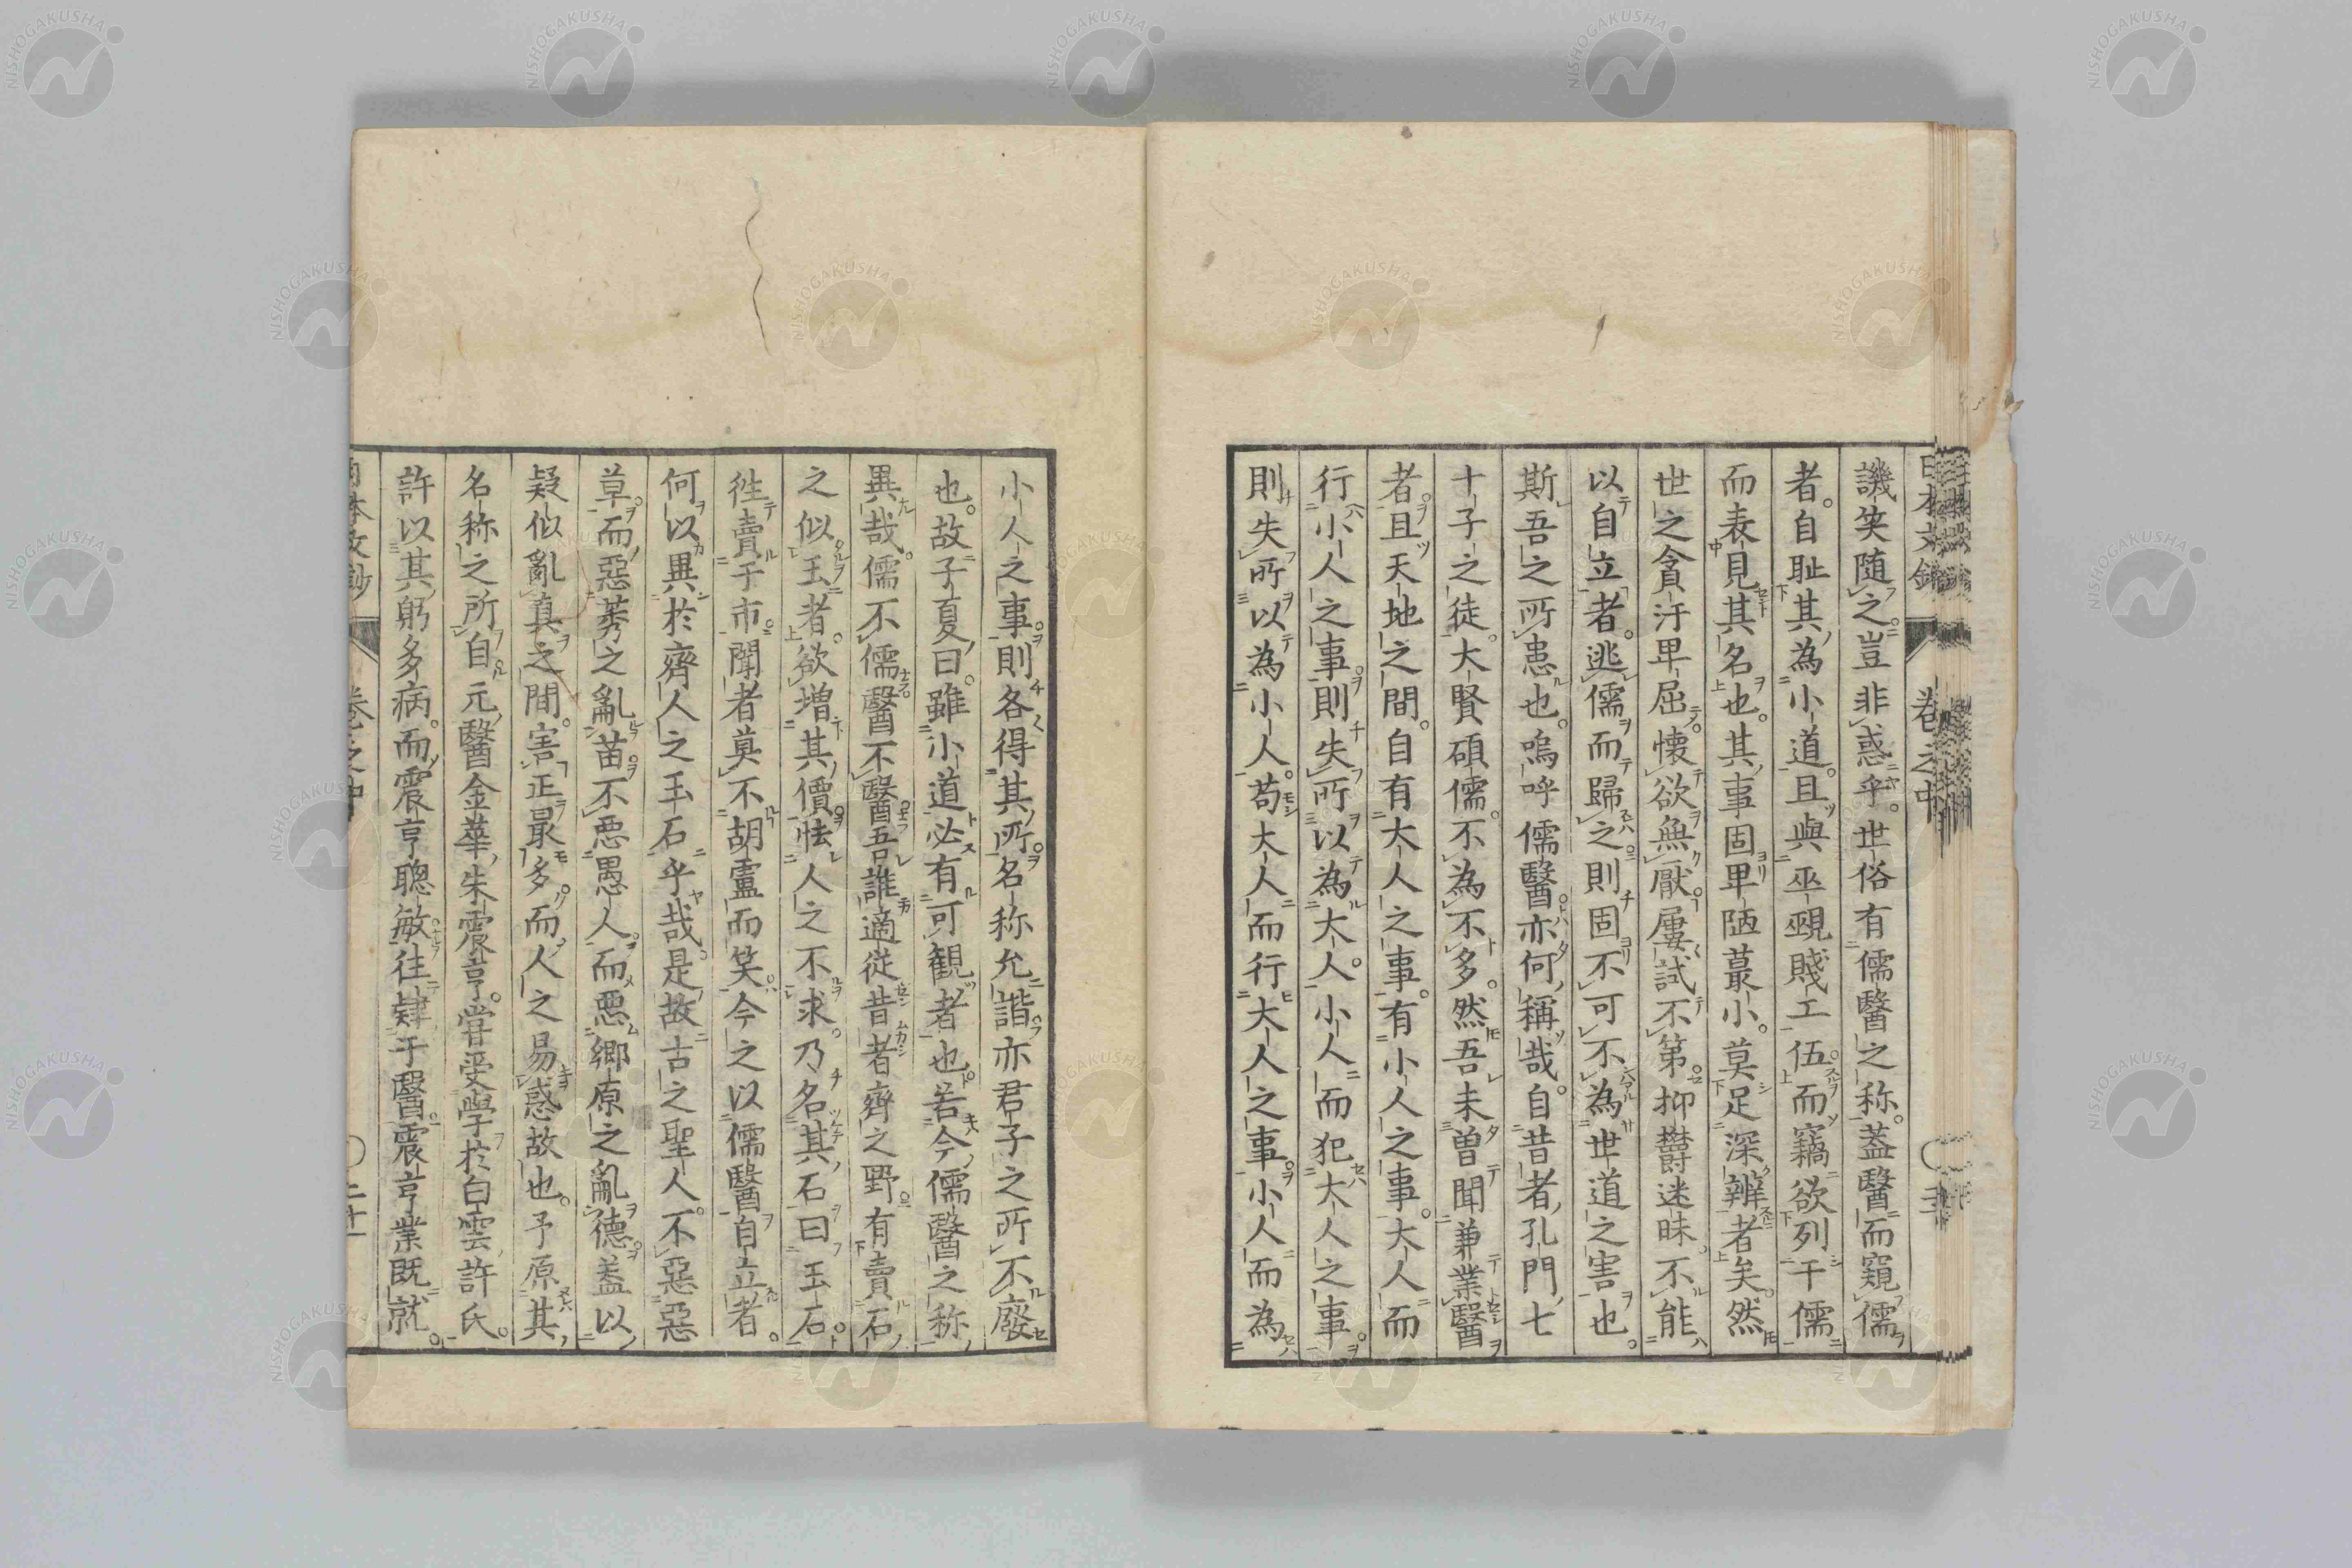 譏笑随之豈非惑乎世俗有儒醫之称蓋醫而窺儒
者。自耻其為小道且與巫覡賤工伍而竊欲列于儒
而表見其名也。其事固卑陋蕞小。莫足深辨者矣。然
世之貪汙卑屈懷欲無厭屢試不第抑欝迷昧不能
以自立者。逃儒而歸之則固不可不為世道之害也。
斯吾之所患也。嗚呼儒醫亦何稱哉。自昔者孔門七
十子之徒。大賢碩儒。不為不多。然吾未曽聞兼業醫
者。且天地之間。自有大人之事。有小人之事。大人而
行小人之事。則失所以為大人。小人而犯大人之事。
則失所以為小人。苟大人而行大人之事小人而為
小人之事。則各得其所。名称允諧。亦君子之所不廢
也。故子夏曰。雖小道必有可観者也。若今儒醫之称
異哉。儒不儒醫不醫吾誰適從昔者齊之野有賣石
之似玉者。欲増其價。怯人之不求。乃名其石曰玉石
徃賣于市聞者莫不胡盧而笑。今之以儒醫自立者。
何以異於齊人之玉石乎哉是故古之聖人。不惡惡
草。而惡莠之亂苗。不悪愚人。而悪郷原之亂德。蓋以
疑似亂真之間。害正最多。而人之易惑故也。予原其
名称之所自元醫金華朱震亨。嘗受學於白雲許氏。
許以其躬多病。而震亨聰敏。往肄于醫。震亨業既就。
NISHOGAKUSHA